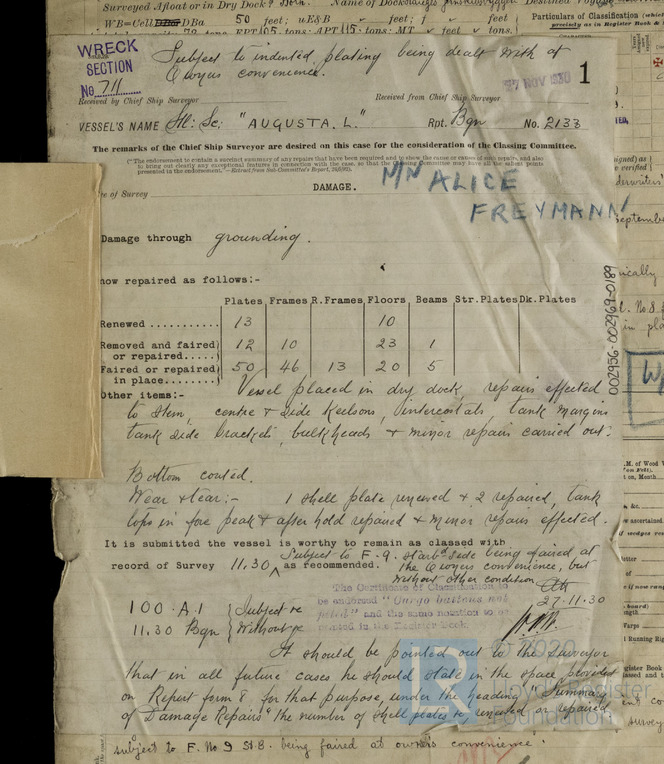 Surveyed Afloat or in Dry Dock?
Name of Dock
Particulars of Classification
50 feet; uE&B feet; f feet
tons: EPT 105 tons: APT 115 tons: MT feet tons.
WRECK
SECTION
No. 711
Subject to indented plating being dealt with at
Owners convenience.
27 NOV 1930
1
Received by Chief Ship Surveyor
Received from Chief Ship Surveyor
VESSEL'S NAME St: Sc; "AUGUSTA. L." Rpt. Bgn No. 2133
The remarks of the Chief Ship Surveyor are desired on this case for the consideration of the Classing Committee.
("The endorsement to contain a succinct summary of any repairs that have been required and to show the name or values of such repairs, and also
to bring out clearly any exceptional features in connection with the case, so that the Committee may have all the salient points
presented in the endorsement."—Extract from Sub-Committee's Report,
of Survey
DAMAGE.
MN ALICE
FREYMANN
Damage through grounding.
now repaired as follows:-
Plates Frames R.Frames Floors Beams Str.Plates Dk.Plates
Renewed .......... 13 10
Removed and faired) 12 10 23 1
or repaired.....)
Faired or repaired) 50 46 13 20 5
in place........)
Other items:- Vessel placed in dry dock, repairs effected
to stem, centre & side keelsons, intercostals, tank margins
tank side brackets, bulkheads & minor repairs carried out.
Bottom coated.
Wear & tear:- 1 shell plate renewed & 2 repaired, tank
tops in fore peak & after hold repaired & minor repairs effected.
It is submitted the vessel is worthy to remain as classed with
Subject to F. 9. starbd side being faired at
record of Survey 11.30 ^ as recommended. the Owners convenience, but
without other condition
27.11.30
The Certificate of Classification to
be endorsed "Cargo battens not
fitted" and the same notation to be
printed in the Register Book.
100.A.1 {Subject re
11.30 Bgn {Without re
It should be pointed out to the Surveyor
that in all future cases he should state in the space provided
on Report form 8 for that purpose, under the heading "Summary
of Damage Repairs" the number of shell plates &c renewed or repaired
subject to F. No 9 St B. being faired at owners convenience
002956-002969-0189
© 2020
Lloyd's Register
Foundation